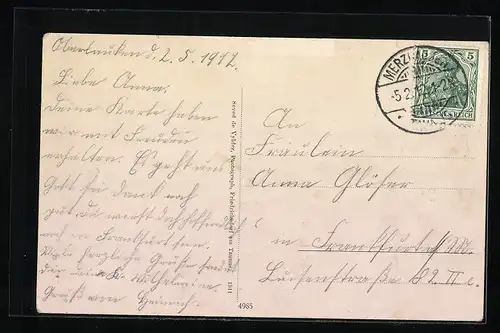 Oberlauken d. 2. 5. 1912.
Liebe Anna.
deine Karte haben
wir mit Freuden
erhalten. Es geht uns
Gott sei dank noch
gut, du wirst doch hoffentlich
noch in Frankfurt sein.
Viele herzliche Grüße sendet
dir Wilhelmine
Gruß von Heinrich.
Saved de Vylder, Photograph, Friedrichsdorf am Taunus. 1911
4985
5 5
MERZHAUSEN
An
Fräulein
Anna Glöser
in Frankfurt a/M.
Luisenstraße 82 II r.